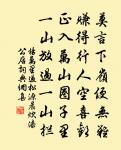 莫言下嶺便無難
賺得行人空喜歡
正入萬山圈子裏
一山放過一山攔
楊萬里過松源晨炊漆
公店詞典網集